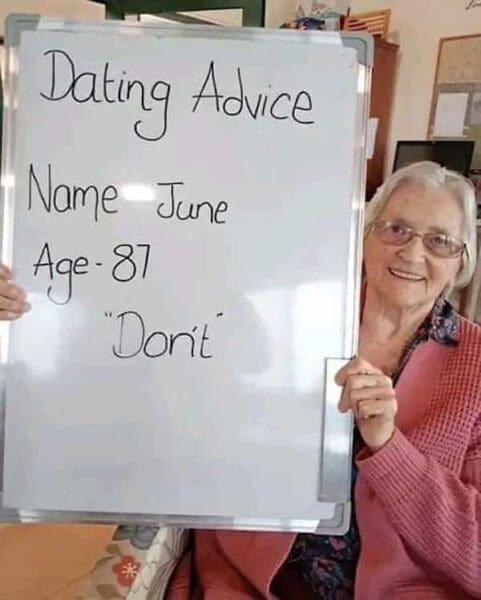 Dating Advice
Name - June
Age - 87
"Don't"